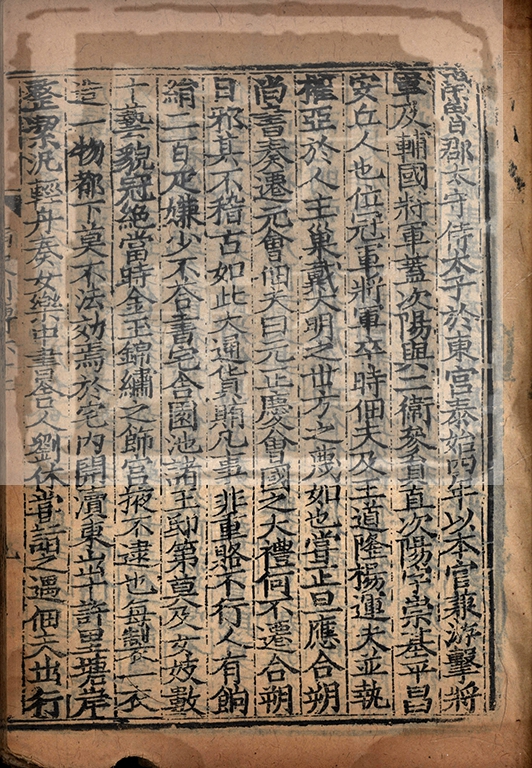 郡太守侍太子於東宮泰始四年以本官兼游擊將
軍及輔國將軍蓋次陽與二衛參員直次陽字崇基平昌
安丘人也位冠軍將軍卒時佃夫及王道隆楊運夫並執
權亞於人主巢戴大明之世方之蔑如也嘗正旦應合朔
尚書奏遷元會佃夫曰元正慶會國之大禮何不遷合朔
日邪其不稽古如此大通貨賄凡事非重賂不行人有餉
絹二百疋嫌少不荅書宅舍園池諸王邸第莫及女妓數
十藝貌冠絕當時金玉錦繡之飾宮掖不逮也每製一衣
造一物都下莫不法効焉於宅內開瀆東出十許里塘岸
整潔汎輕舟奏女樂中書舍人劉休嘗詣之遇佃夫出行